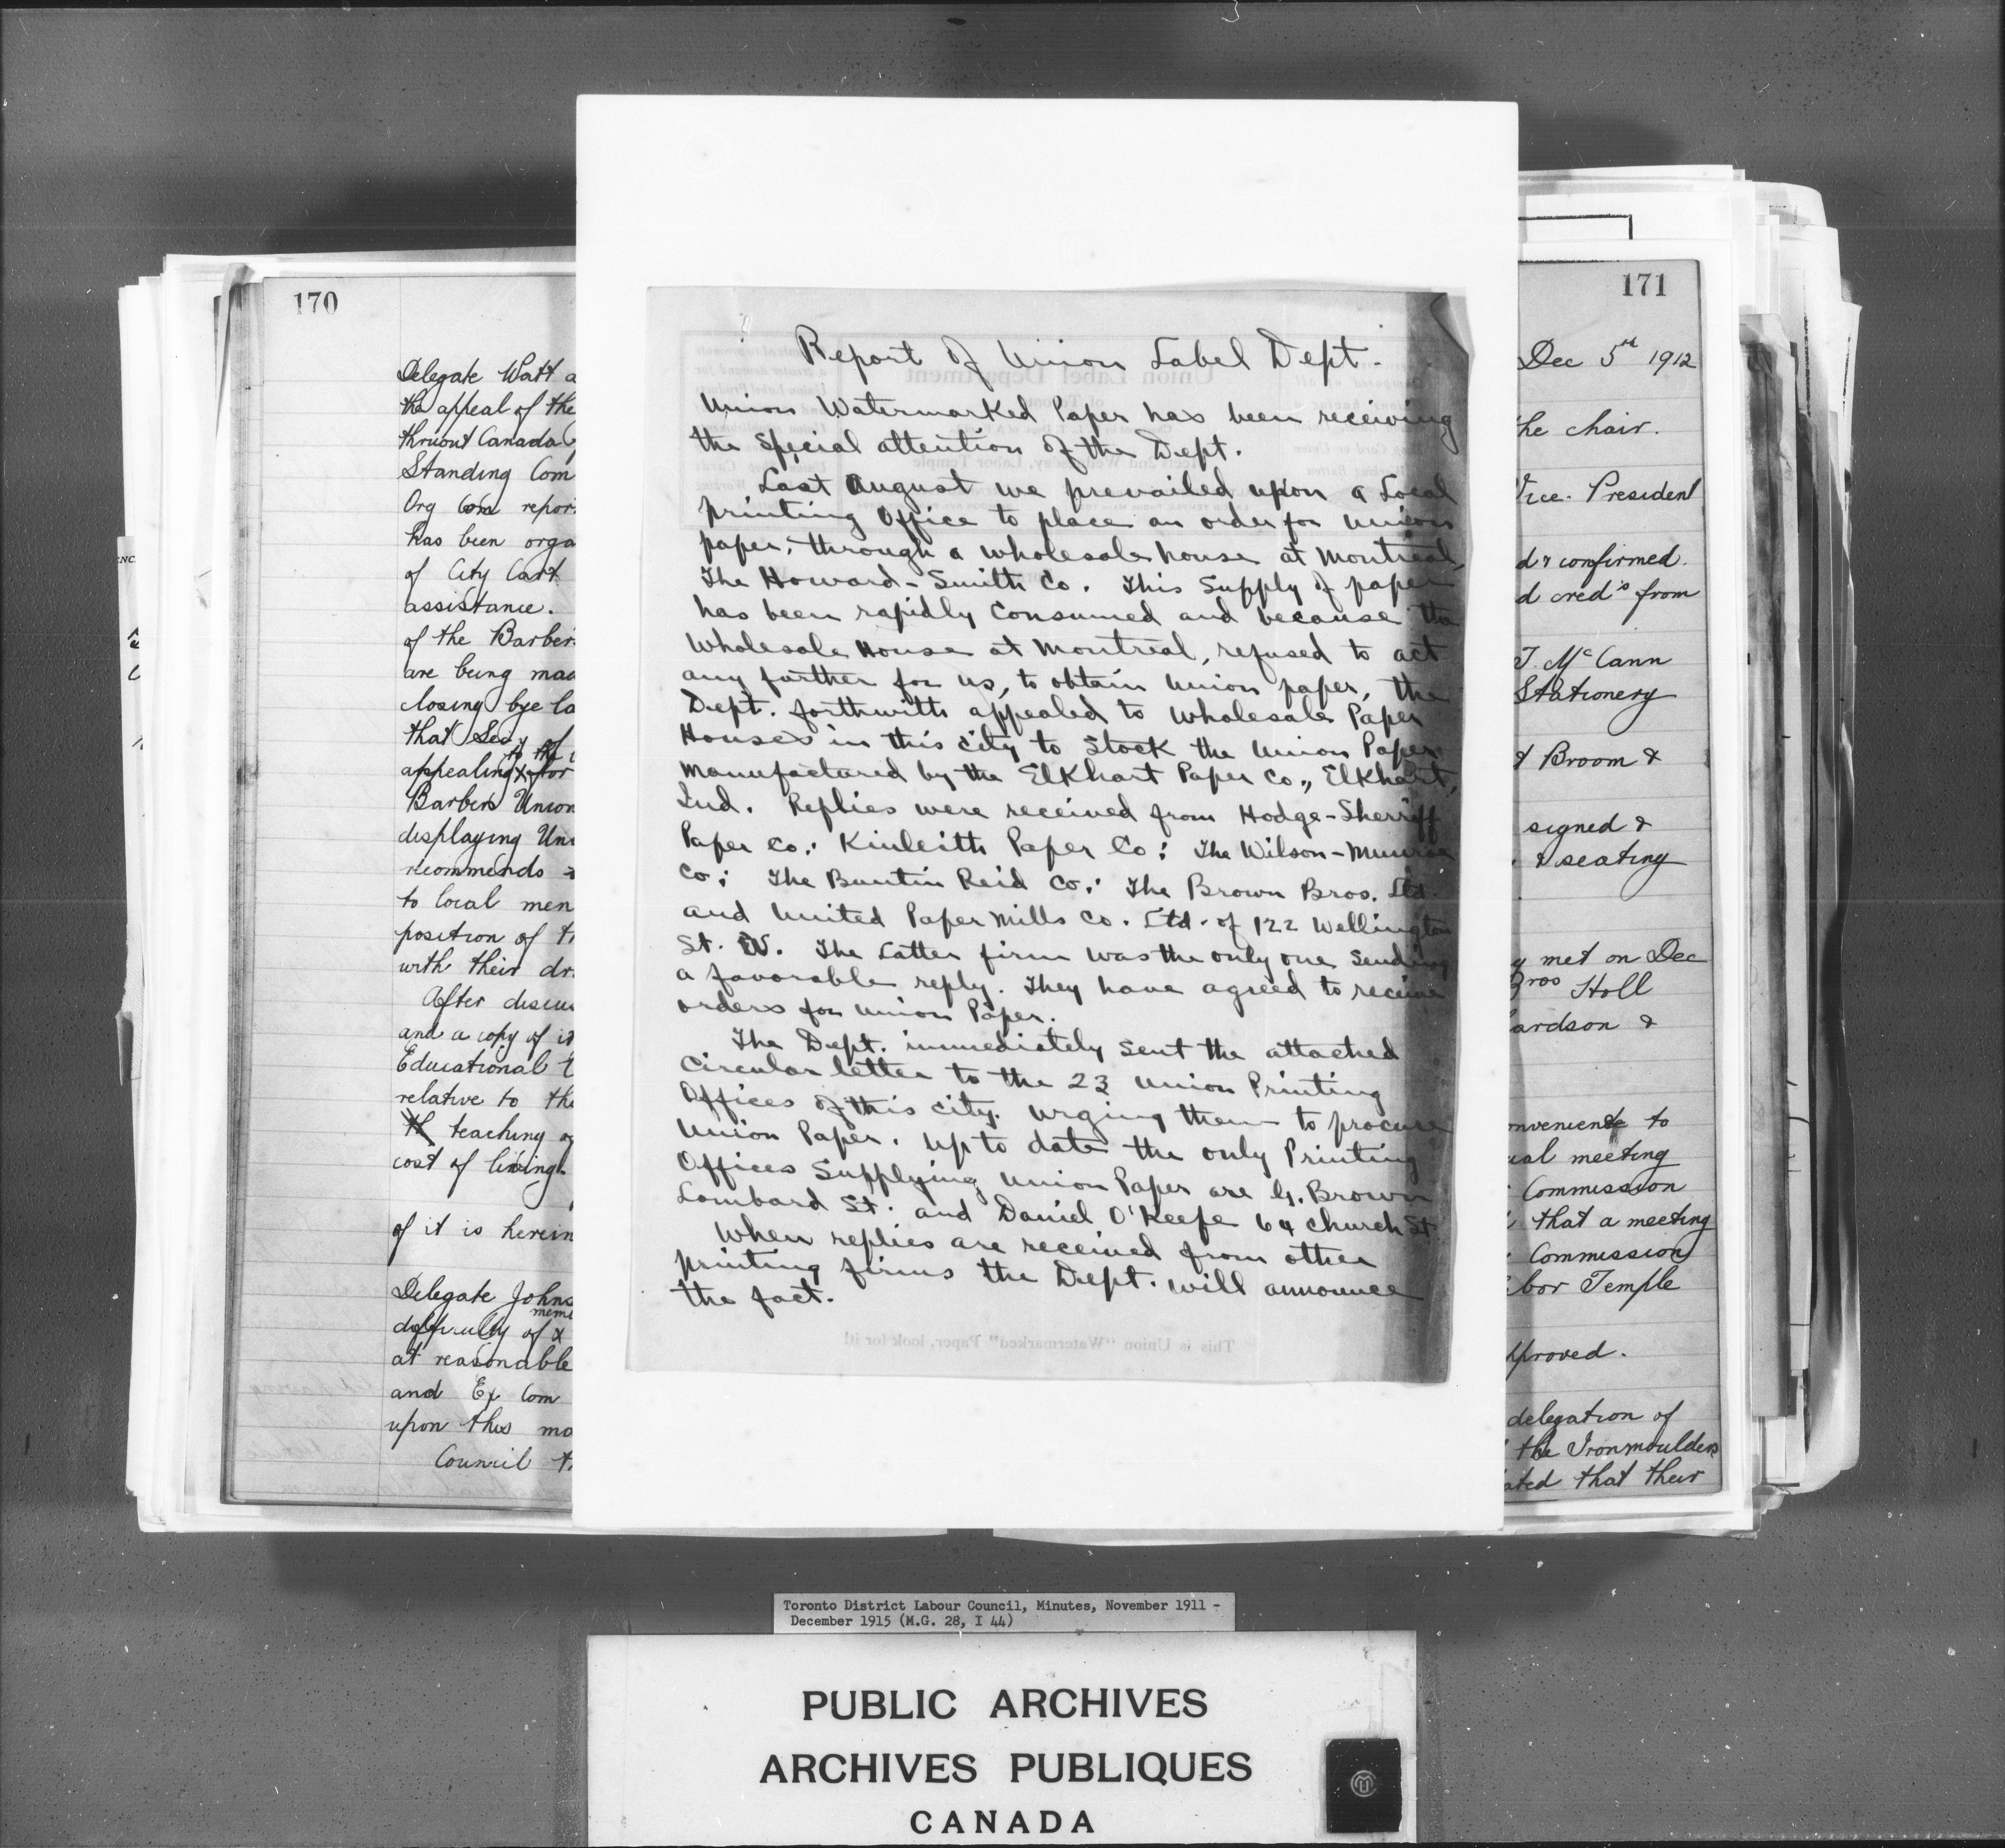 170
Delegate Watt a
the appeal of the
thruout Canada
Standing Com
Org Com repor
has been orga
of City Cart
assistance.
of the Barber
are being mad
closing bye la
that Secy of
to the
appealing for
Barbers Union
displaying Uni
recommends
to local men
position of th
with their dr
After discu
and a copy of it
Educational
relative to the
teaching o
cost of living.
of it is herein
Delegate Johns
mem
difficulty of
at reasonable
and Ex Com
upon this mo
Council
Report of Union Label Dept.
Union Watermarked Paper has been receiving
the special attention of the Dept.
Last August we prevailed upon a Local
printing Office to place an order for Union
paper, through a wholesale house at Montreal,
The Howard-Smith Co. This Supply of paper
has been rapidly Consumed and because the
Wholesale House at Montreal, refused to act
any further for us, to obtain Union paper, the
Dept. forthwith appealed to Wholesale Paper
Houses in this city to Stock the Union Paper
Manufactured by the Elkhart Paper Co., Elkhart,
Ind. Replies were received from Hodge-Sherriff
Paper Co.; Kinleith Paper Co; The Wilson-Munroe
Co; The Buntin Reid Co; The Brown Bros. Ltd.
and United Paper Mills Co. Ltd. of 122 Wellington
St. W. The Latter firm was the only one Sending
a favorable reply. They have agreed to receive
orders for Union Paper.
The Dept. immediately sent the attached
Circular letter to the 23 Union Printing
Offices of this city. Urging them to procure
Union Paper. Up to date the only Printing
Offices Supplying Union Paper are G. Brown
Lombard St. and Daniel O'Keefe 64 Church St
When replies are received from other
printing firms the Dept. will announce
the fact.
This is Union "Watermarked" Paper, look for it!
171
Dec 5th 1912
the chair.
Vice-President
d & confirmed.
d cred's from
T. McCann
Stationery
& Broom &
signed &
& seating
y met on Dec
Bros Holl
ardson &
onvenient to
ial meeting
Commission
that a meeting
Commission
abor Temple
pproved.
delegation of
the Ironmoulders
ated that their
Toronto District Labour Council, Minutes, November 1911 -
December 1915 (M.G. 28, I 44)
PUBLIC ARCHIVES
ARCHIVES PUBLIQUES
CANADA